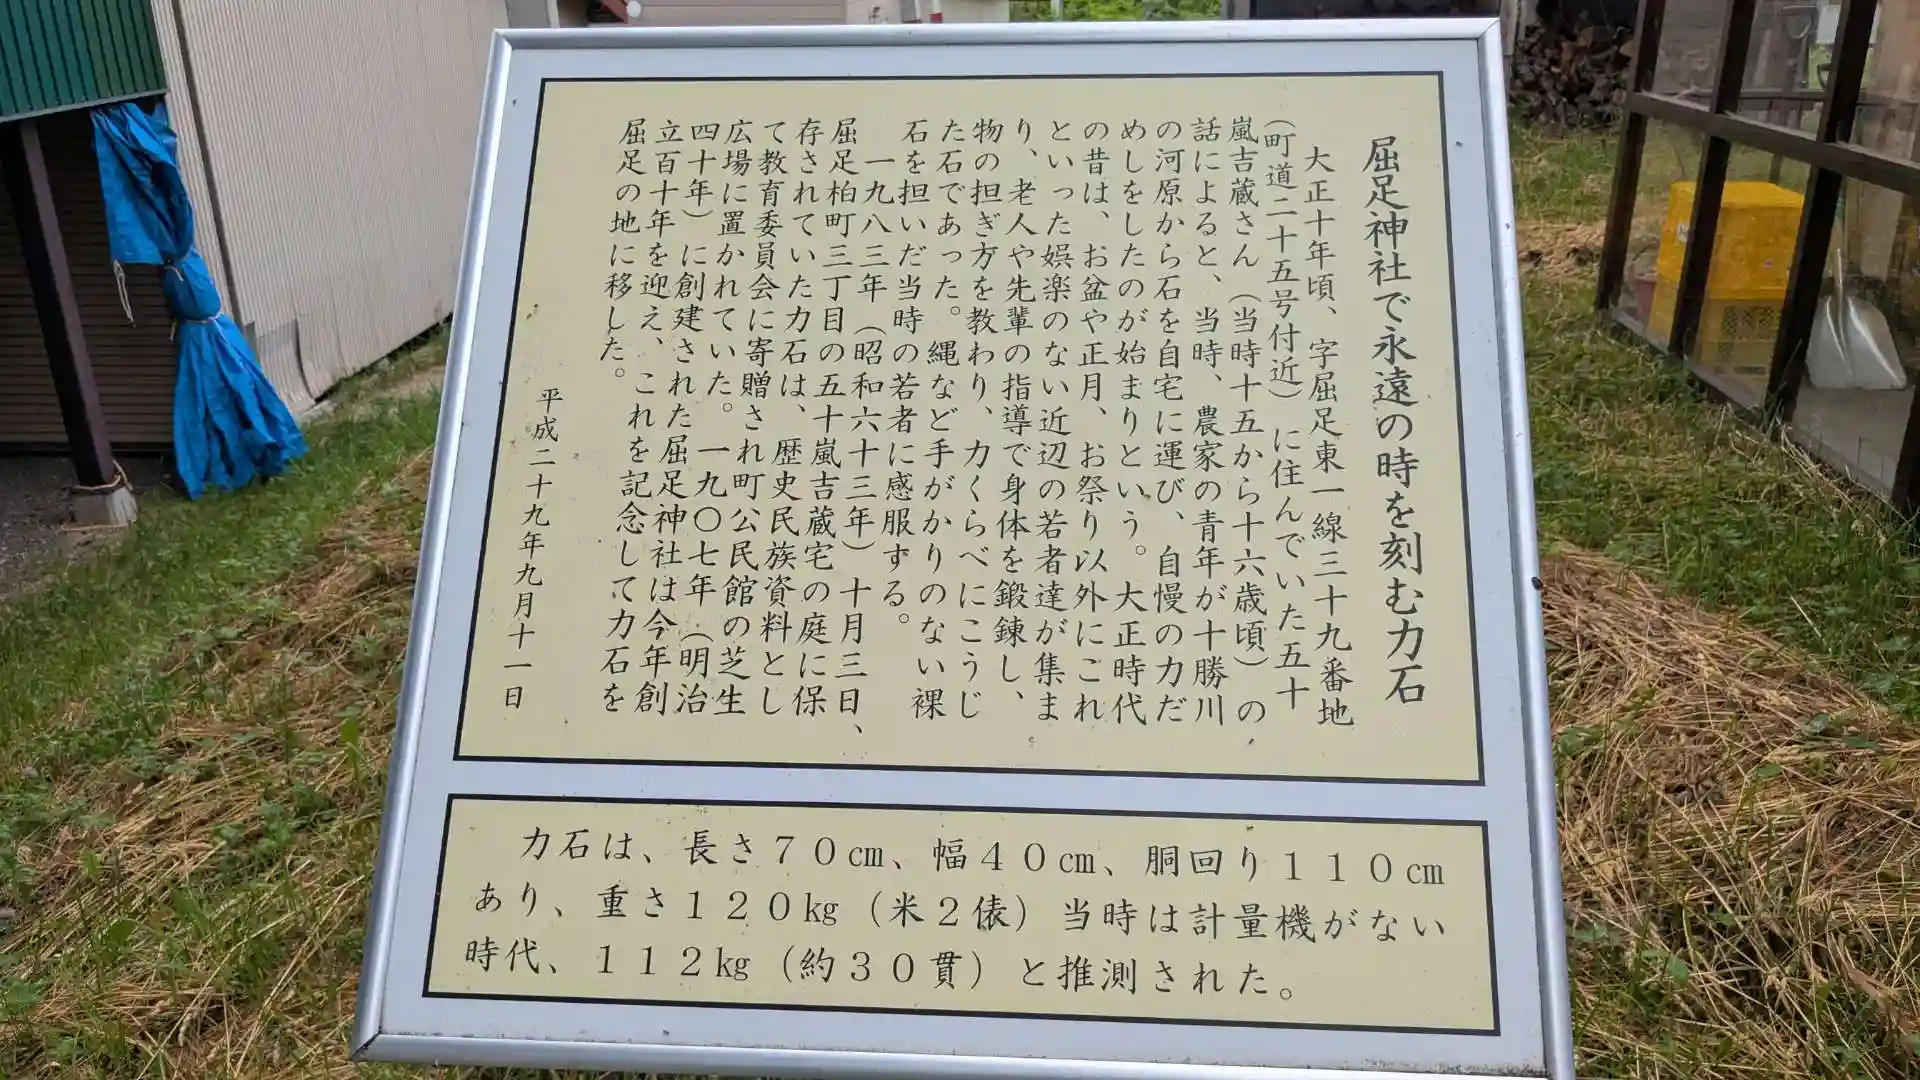 屈足神社で永遠の時を刻む力石
大正十年頃、字屈足東一線三十九番地
（町道二十五号付近）に住んでいた五十
嵐吉蔵さん（当時十五から十六歳頃）の
話によると、当時、農家の青年が十勝川
の河原から石を自宅に運び、自慢の力だ
めしをしたのが始まりという。大正時代
の昔は、お盆や正月、お祭り以外にこれ
といった娯楽のない近辺の若者達が集ま
り、老人や先輩の指導で身体を鍛錬し、
物の担ぎ方を教わり、力くらべにこうじ
た石であった。縄など手がかりのない裸
石を担いだ当時の若者に感服する。
一九八三年（昭和六十三年）十月三日、
屈足柏町三丁目の五十嵐吉蔵宅の庭に保
存されていた力石は、歴史民族資料とし
て教育委員会に寄贈され町公民館の芝生
広場に置かれていた。一九〇七年（明治
四十年）に創建された屈足神社は今年創
立百十年を迎え、これを記念して力石を
屈足の地に移した。
平成二十九年九月十一日
力石は、長さ７０㎝、幅４０㎝、胴回り１１０㎝
あり、重さ１２０㎏（米２俵）当時は計量機がない
時代、１１２㎏（約３０貫）と推測された。